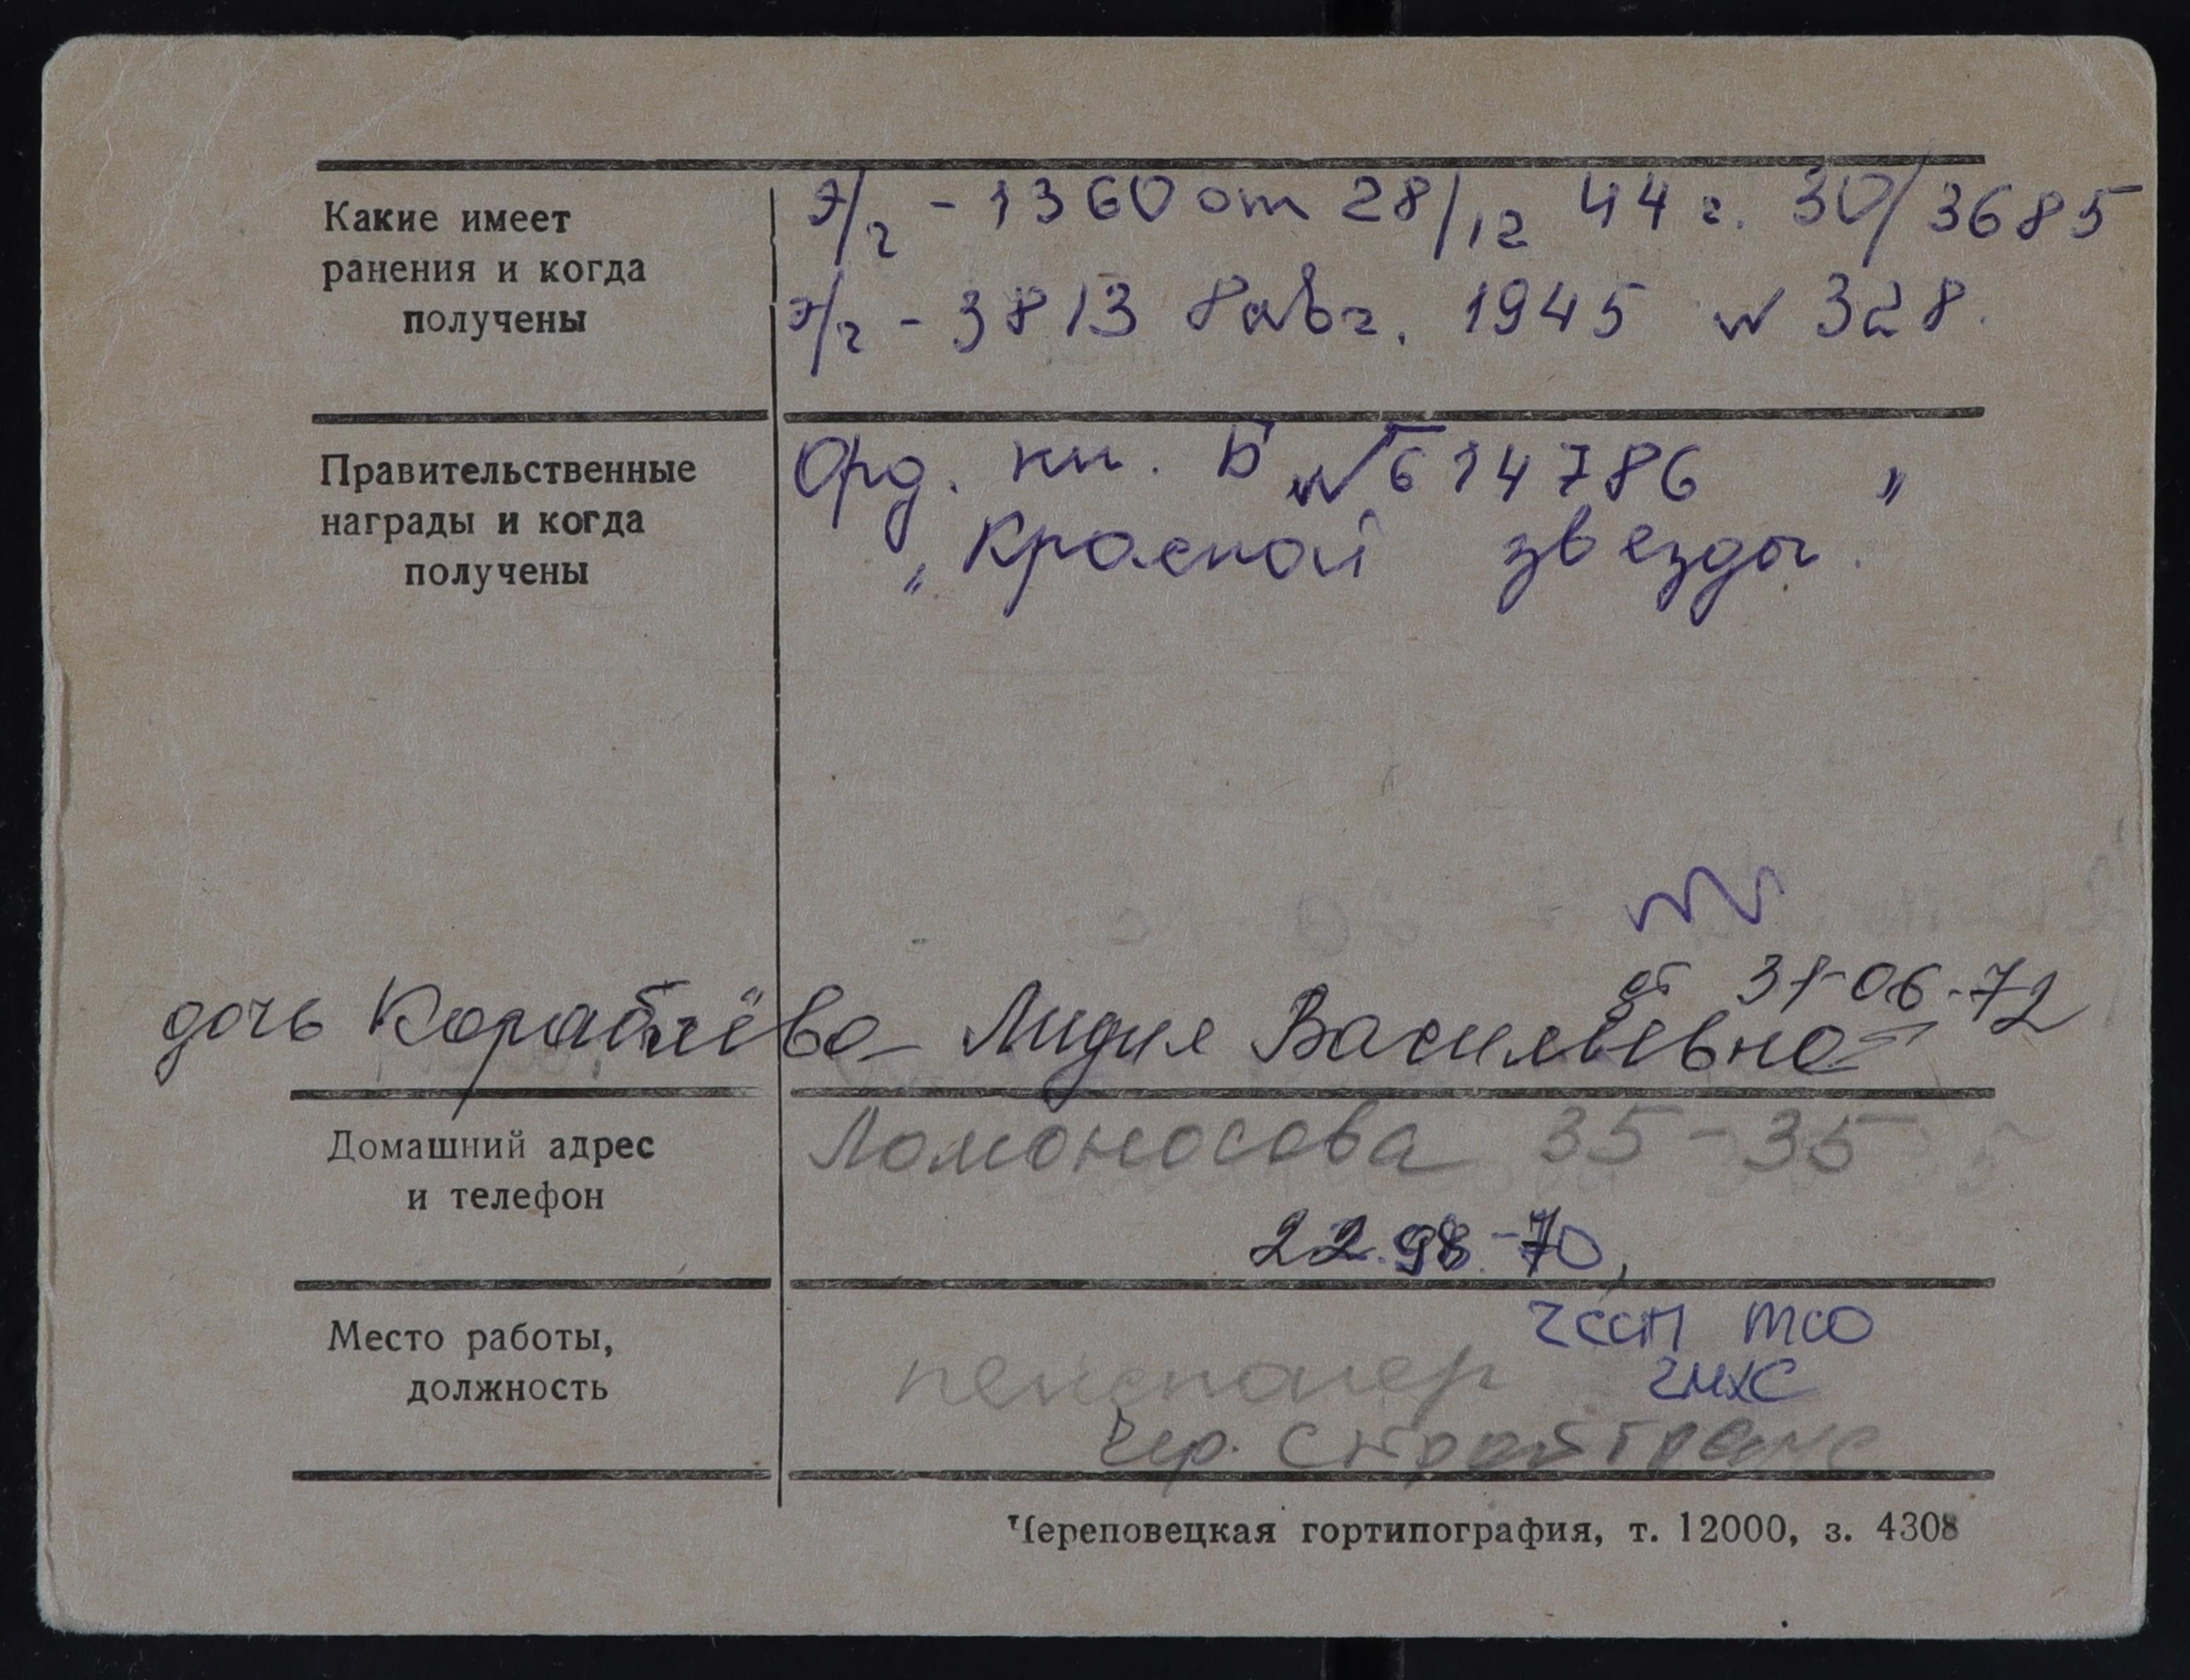 Какие имеет
ранения и когда
получены
э/г - 1360 от 28/12 44 г. 30/3685
э/г - 3813 8 авг. 1945 N 328.
Правительственные
награды и когда
получены
Орд. кн. Б № 614786 "
„Красной звезды.
от 31-06-72
дочь Кораблёва Лидия Васильевна
Домашний адрес
и телефон
Ломоносова 35-35
22.98-70,
Место работы,
должность
ЧССМ ТСО
пенсионер ЧМХС
Чер. Стройтранс
Череповецкая гортипография, т. 12000, з. 4308